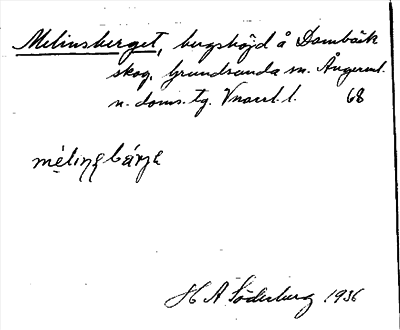 Melinsberget, bergshöjd å Dombäck
skog, Grundsunda sn. Ångerml.
n. doms. tg. Vnorrl. l. 68
mélıŋƨbárjə
H A Söderberg 1936